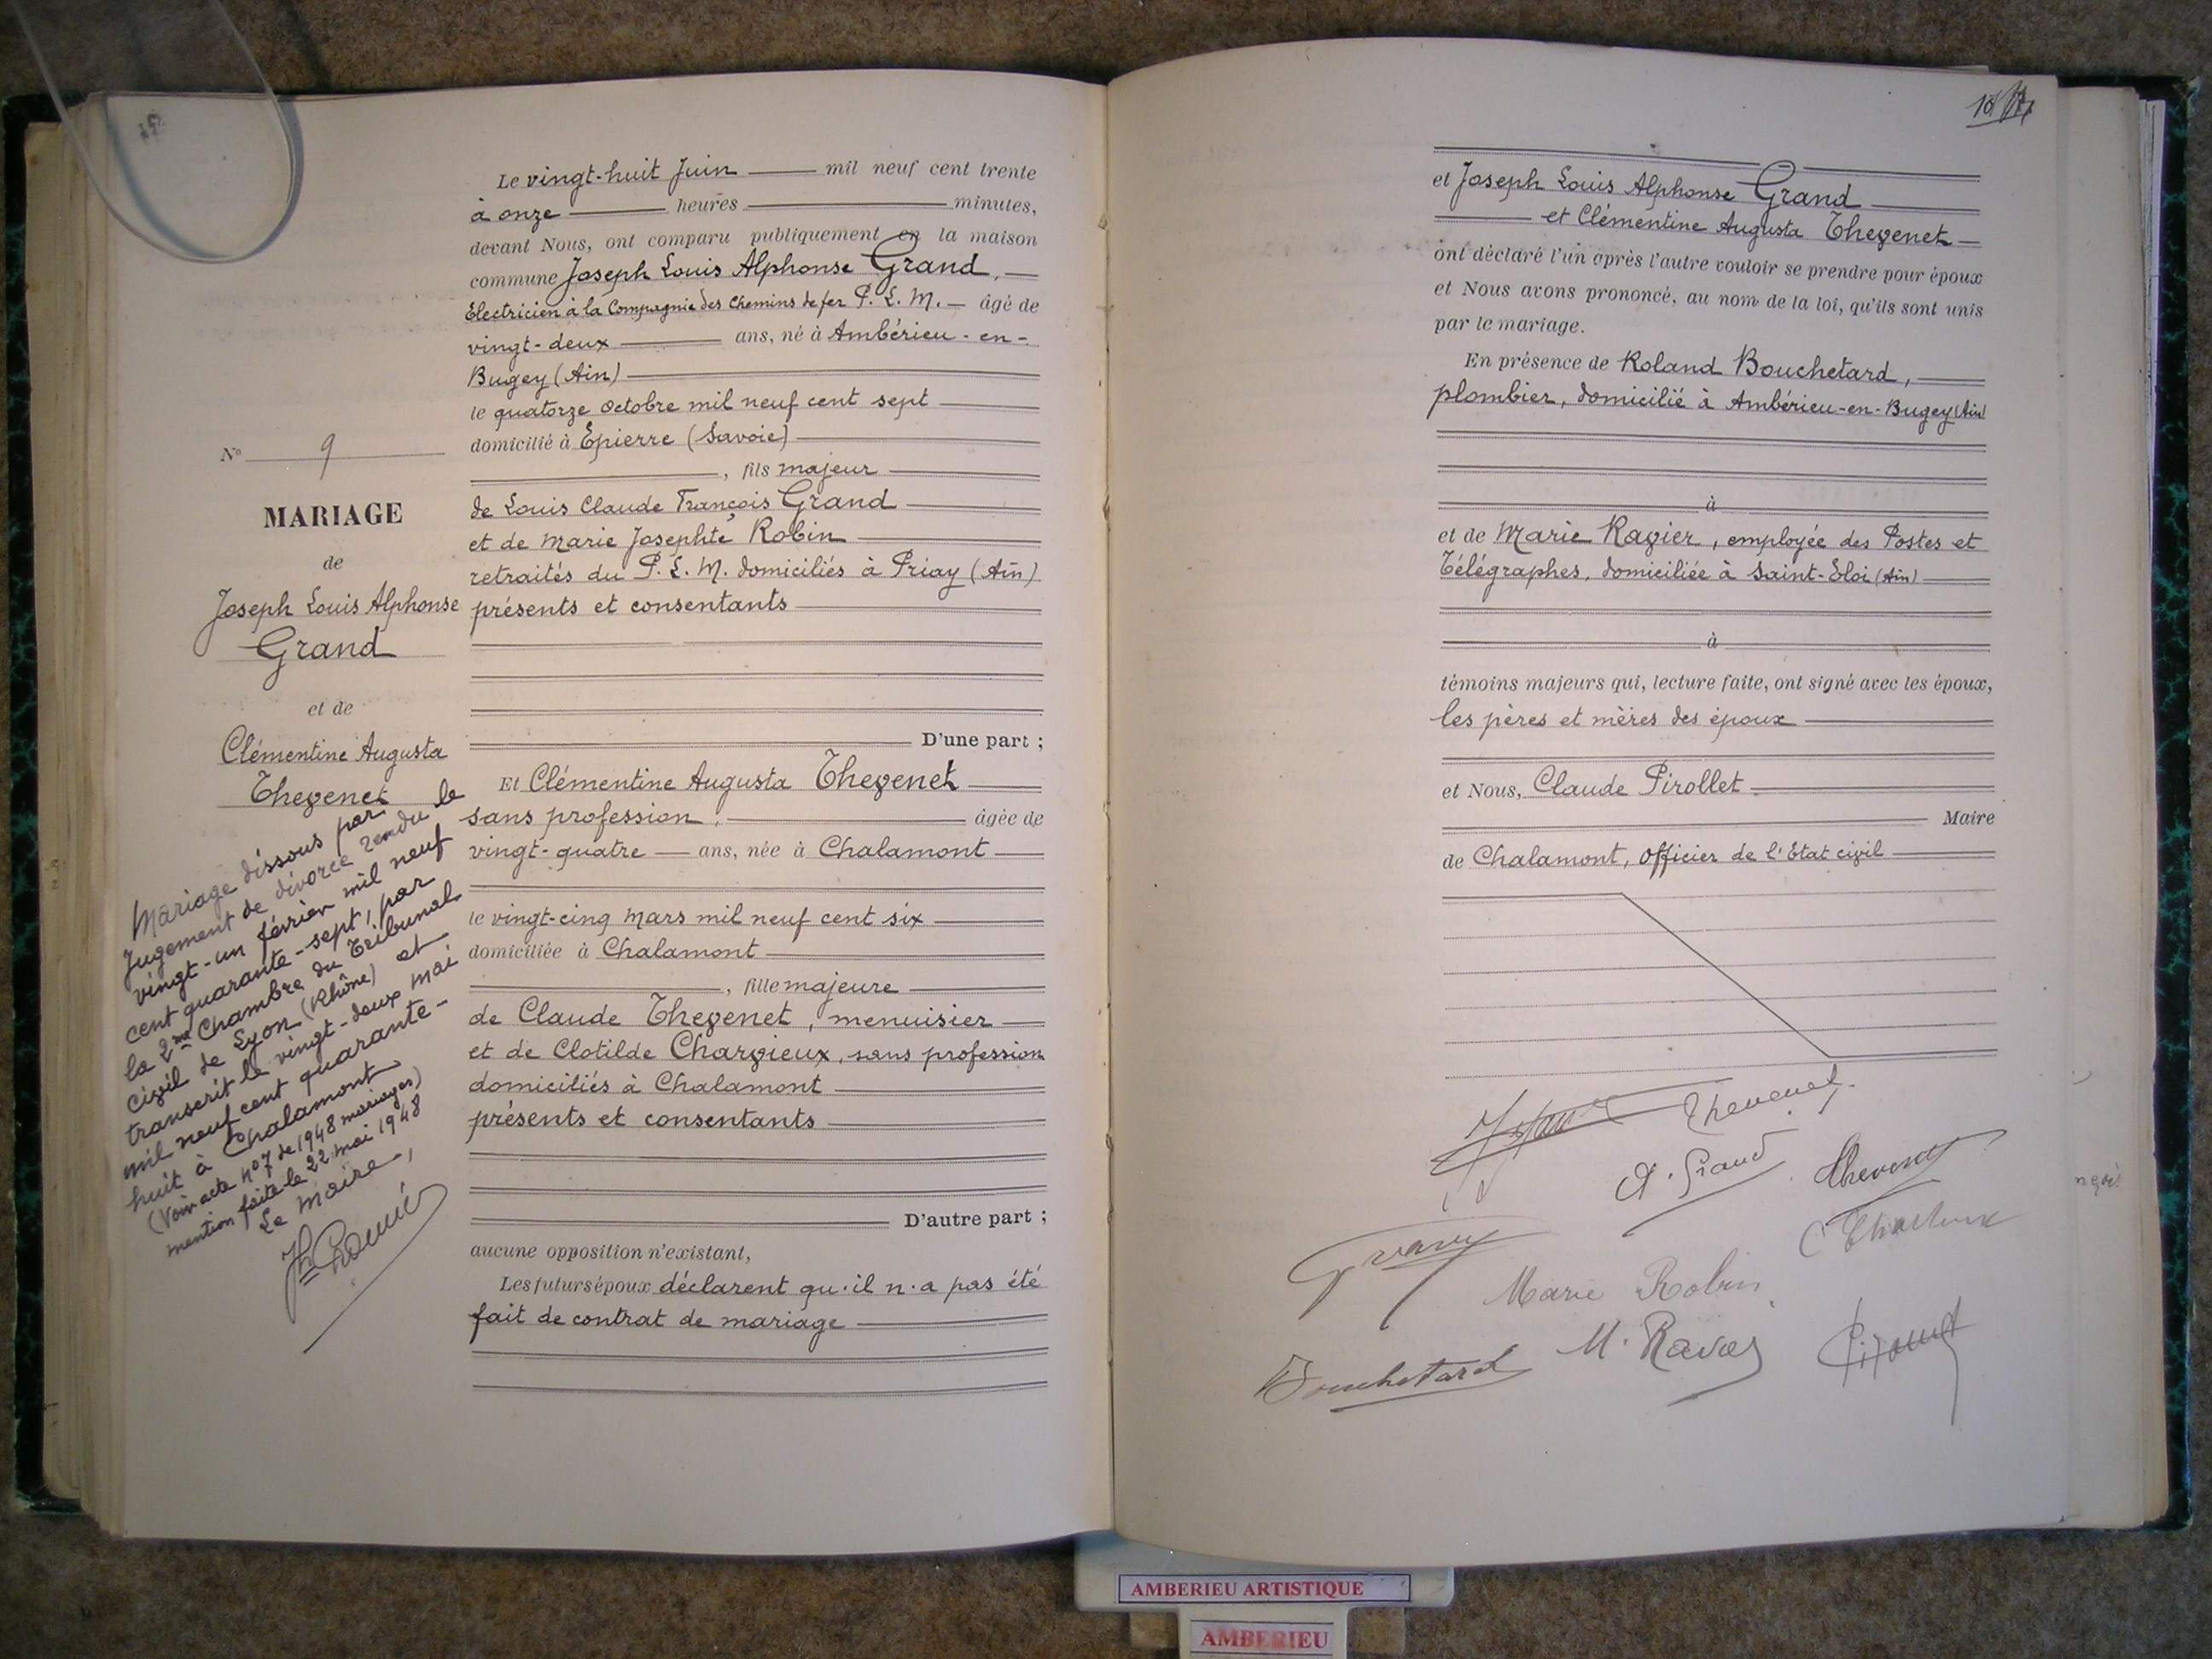 N° 9
MARIAGE
de
Joseph Louis Alphonse
Grand
et de
Clémentine Augusta
Thevenet
Mariage dissous par
Jugement de divorce rendu le
vingt-un février mil neuf
cent quarante-sept, par
la 2me Chambre du Tribunal
civil de Lyon (Rhône) et
transcrit le vingt-deux mai
mil neuf cent quarante-
huit à Chalamont
(Voir acte N° 7 de 1948 mariages)
mention faite le 22 mai 1948
Le Maire,
Le vingt-huit Juin mil neuf cent trente
à onze heures minutes,
devant Nous, ont comparu publiquement en la maison
commune Joseph Louis Alphonse Grand,
Electricien à la Compagnie des Chemins de fer P. L. M. âgé de
vingt-deux ans, né à Ambérieu-en-
Bugey (Ain)
le quatorze octobre mil neuf cent sept
domicilié à Epierre (Savoie)
, fils majeur
de Louis Claude François Grand
et de Marie Josephte Robin
retraités du P. L. M. domiciliés à Priay (Ain)
présents et consentants
D'une part ;
Et Clémentine Augusta Thevenet
sans profession, âgée de
vingt-quatre ans, née à Chalamont
le vingt-cinq Mars mil neuf cent six
domiciliée à Chalamont
, fille majeure
de Claude Thevenet, menuisier
et de Clotilde Charvieux, sans profession
domiciliés à Chalamont
présents et consentants
D'autre part ;
aucune opposition n'existant,
Les futurs époux déclarent qu'il n'a pas été
fait de contrat de mariage
et Joseph Louis Alphonse Grand
et Clémentine Augusta Thevenet
ont déclaré l'un après l'autre vouloir se prendre pour époux
et Nous avons prononcé, au nom de la loi, qu'ils sont unis
par le mariage.
En présence de Roland Bouchetard,
plombier, domicilié à Ambérieu-en-Bugey (Ain)
à
et de Marie Ravier, employée des Postes et
Télégraphes, domiciliée à Saint-Eloi (Ain)
à
témoins majeurs qui, lecture faite, ont signé avec les époux,
les pères et mères des époux
et Nous, Claude Pirollet
Maire
de Chalamont, Officier de l'Etat civil
Thevenet
A. Grand
Thevenet
Marie Robin
Bouchetard
M. Ravier
AMBERIEU ARTISTIQUE
AMBERIEU